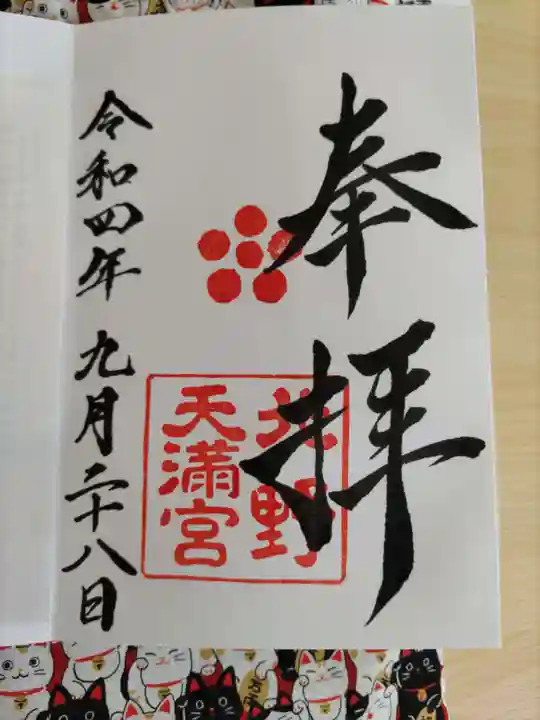 奉拝
北野
天満宮
令和四年 九月二十八日